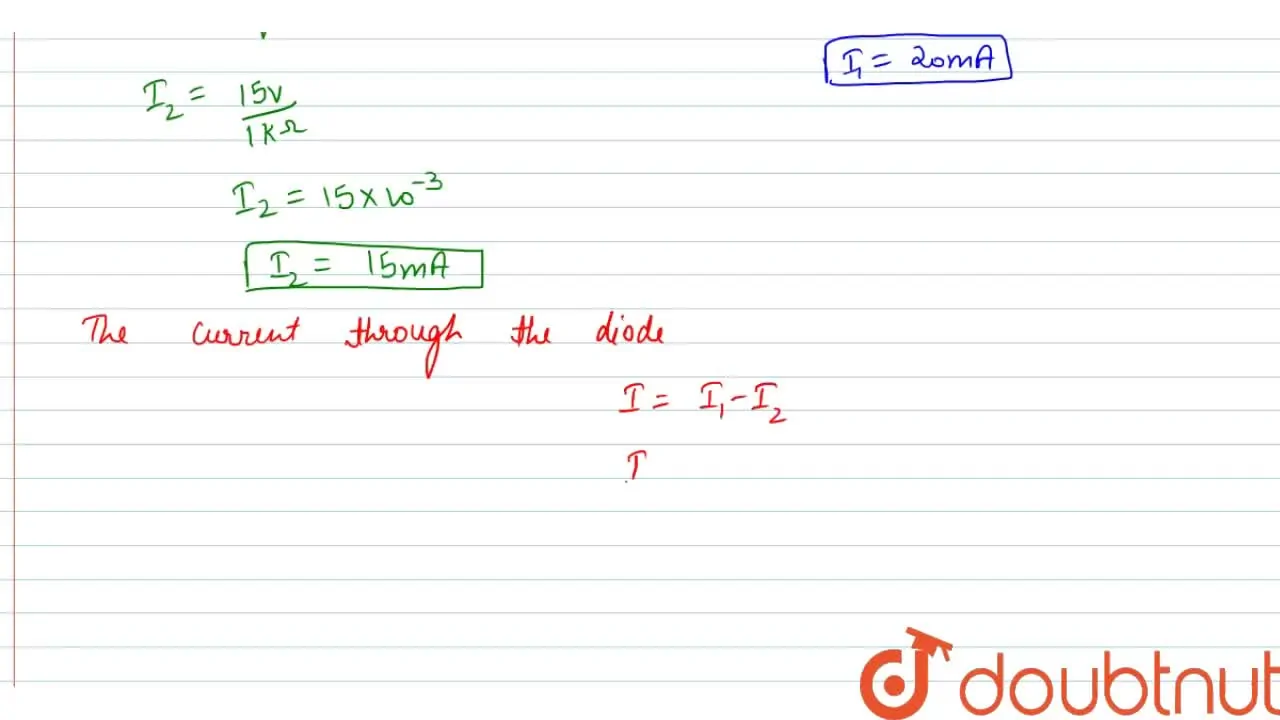 I₁ = 20mA
I₂ = 15v
1KΩ
I₂ = 15×10⁻³
I₂ = 15mA
The current through the diode
I = I₁-I₂
I
doubtnut